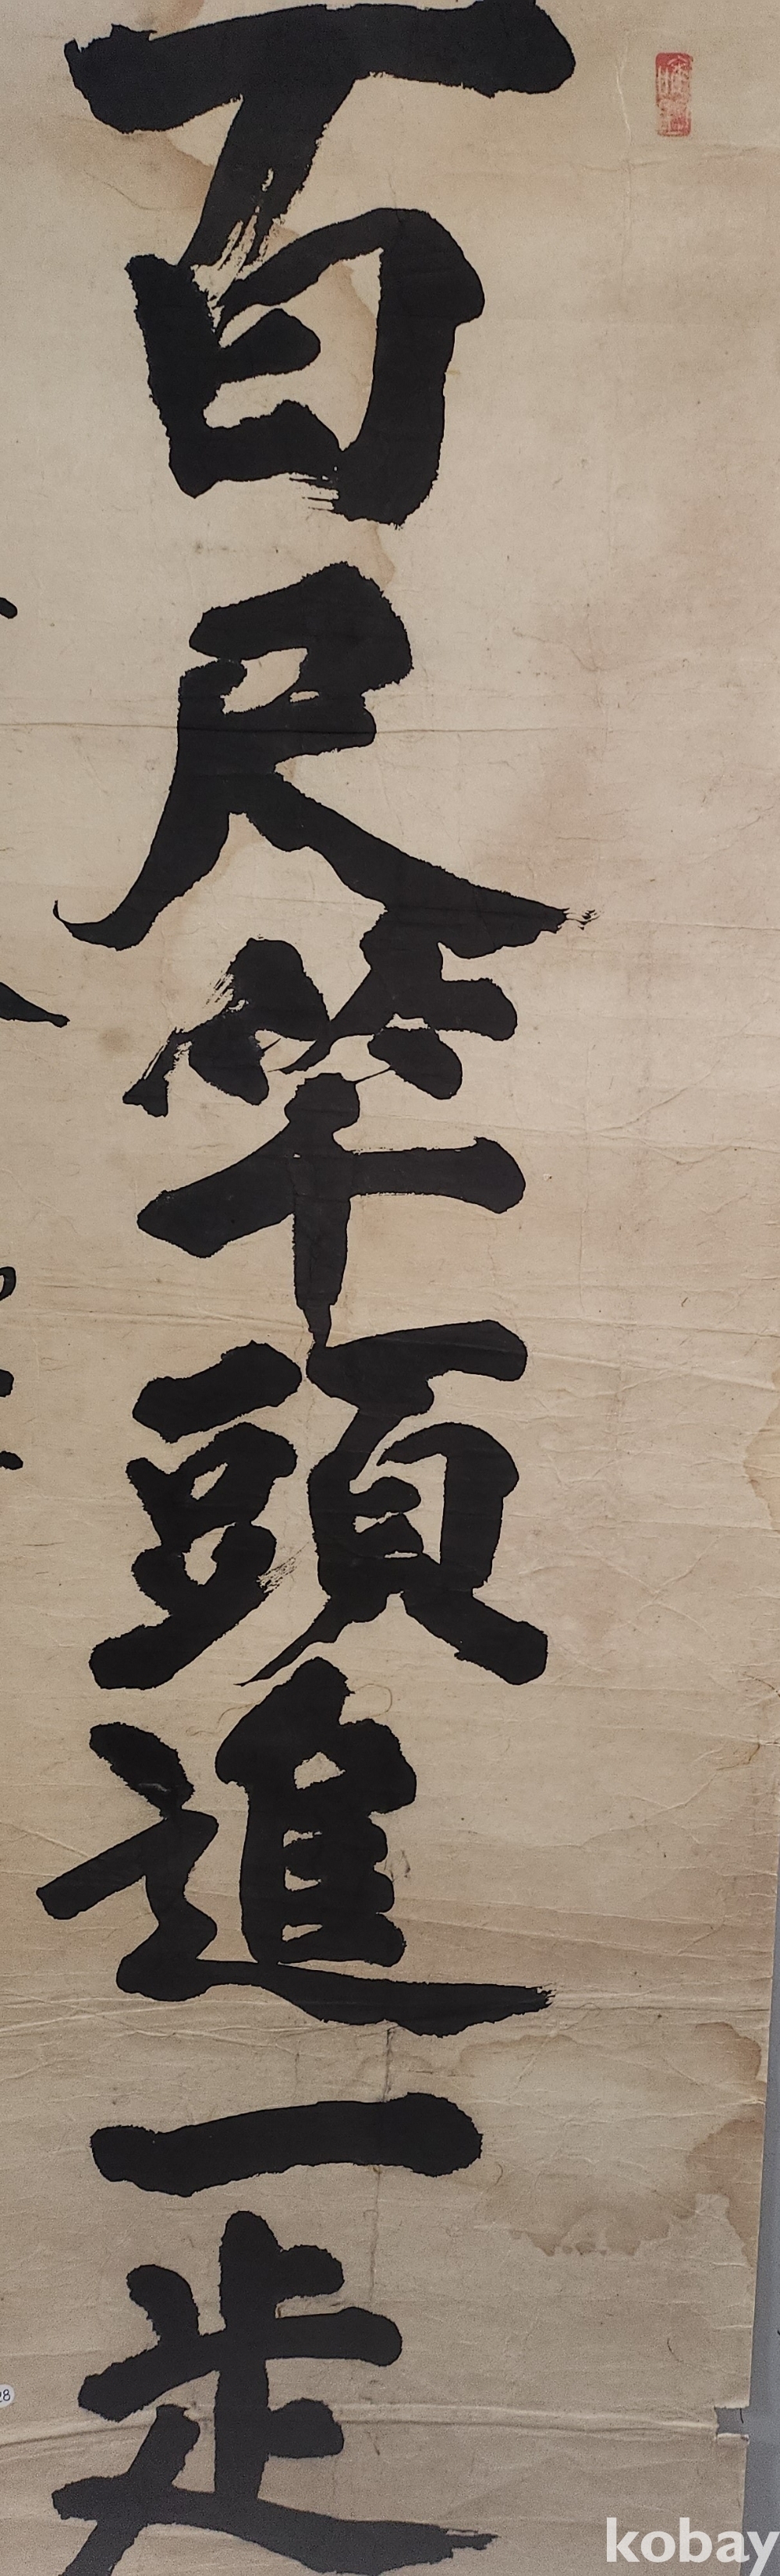 百尺竿頭進一步
28
kobay